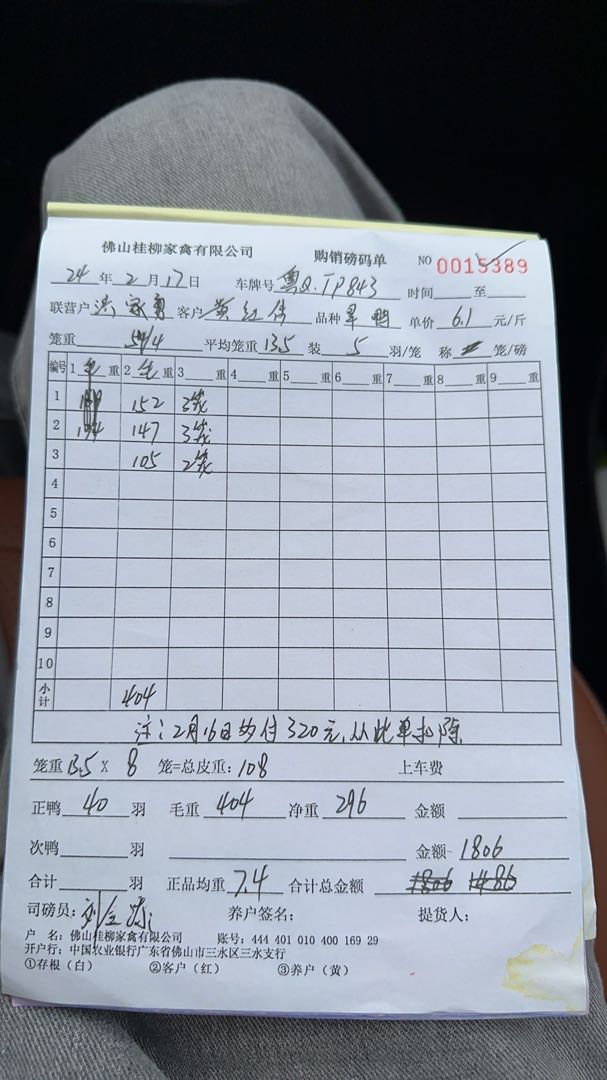 佛山桂柳家禽有限公司 购销磅码单 NO 0015389
24年2月17日 车牌号 粤Q.TP843 时间 至
联营户 家 客户 黄红伟 品种 鸭 单价 6.1 元/斤
笼重 54/4 平均笼重 13.5 装 5 羽/笼 称 笼/磅
编号 1 毛 重 2 毛 重 3 重 4 重 5 重 6 重 7 重 8 重 9 重
1 152 3笼
2 147 3笼
3 105 2笼
4
5
6
7
8
9
10
小计 404
注:2月16日 付320元,从此单扣除
笼重 13.5 X 8 笼=总皮重: 108 上车费
正鸭 40 羽 毛重 404 净重 296 金额
次鸭 羽 金额 1806
合计 羽 正品均重 7.4 合计总金额 1806 1486
司磅员: 刘 养户签名: 提货人:
户 名: 佛山桂柳家禽有限公司 账号: 444 401 010 400 169 29
开户行: 中国农业银行广东省佛山市三水区三水支行
①存根(白) ②客户(红) ③养户(黄)